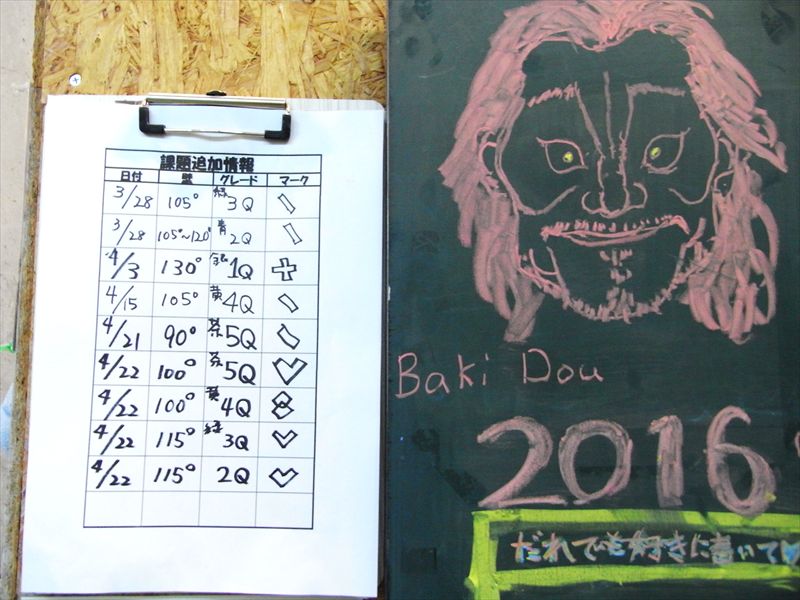 課題追加情報
日付 壁 グレード マーク
3/28 105° 緑3Q
3/28 105°~120° 青2Q
4/3 130° 銀1Q
4/15 105° 黄4Q
4/21 90° 茶5Q
4/22 100° 茶5Q
4/22 100° 黄4Q
4/22 115° 緑3Q
4/22 115° 2Q
Baki Dou
2016
だれでも好きに書いて